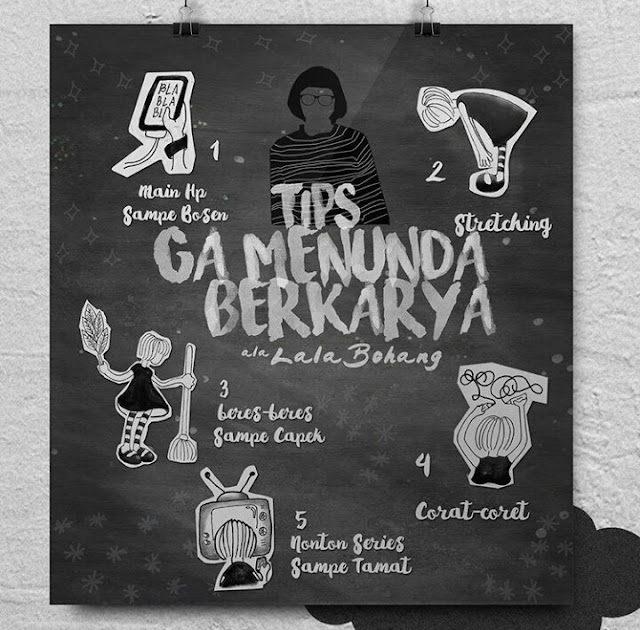 BLA
BLA
BL
1
Main Hp
Sampe Bosen
2
Stretching
TIPS
GA MENUNDA
BERKARYA
ala Lala Bohang
3
beres-beres
Sampe Capek
4
Corat-coret
5
Nonton Series
Sampe Tamat